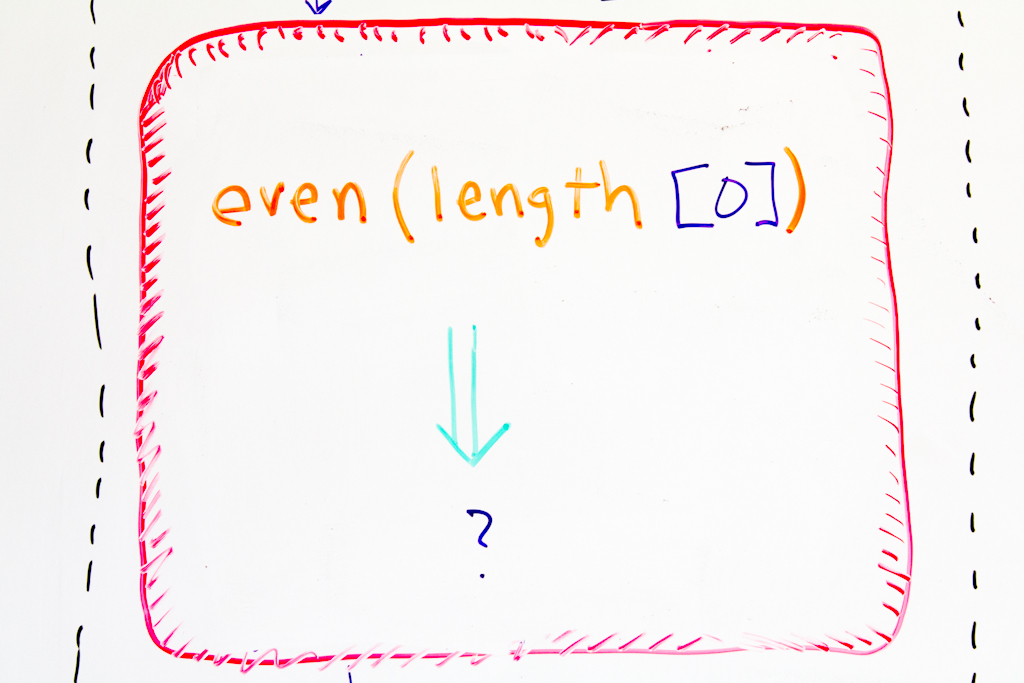 even (length [0])
?